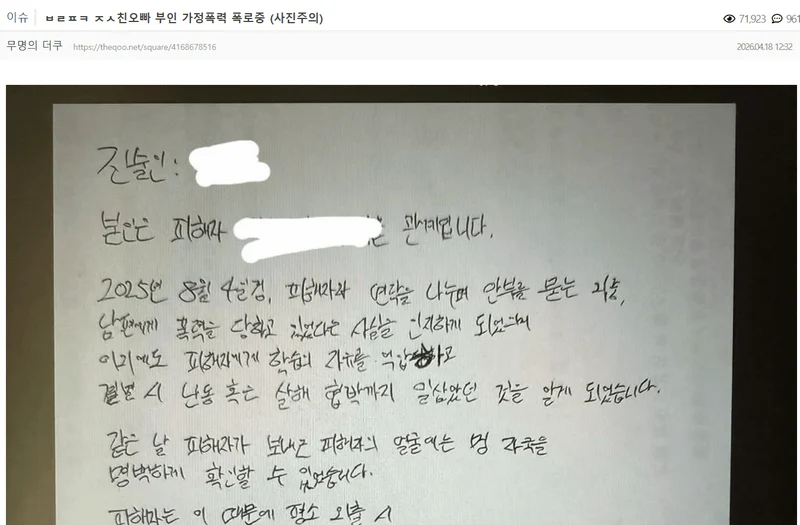 이슈 ㅂㄹㅍㅋ ㅈㅅ친오빠 부인 가정폭력 폭로중 (사진주의) 71,923 961
무명의 더쿠 https://theqoo.net/square/4168678516 2026.04.18 12:32
진술인:
본인은 피해자 관계입니다.
2025년 8월 4일경, 피해자와 연락을 나누며 안부를 묻는 와중,
남편에게 폭력을 당하고 있었다는 사실을 인지하게 되었으며
이외에도 피해자에게 학습의 자유를 억압하고
결별 시 난동 혹은 살해 협박까지 일삼았던 것을 알게 되었습니다.
같은 날 피해자가 보내온 피해자의 얼굴에는 멍 자국을
명백하게 확인할 수 있었습니다.
피해자는 이 때문에 평소 외출 시